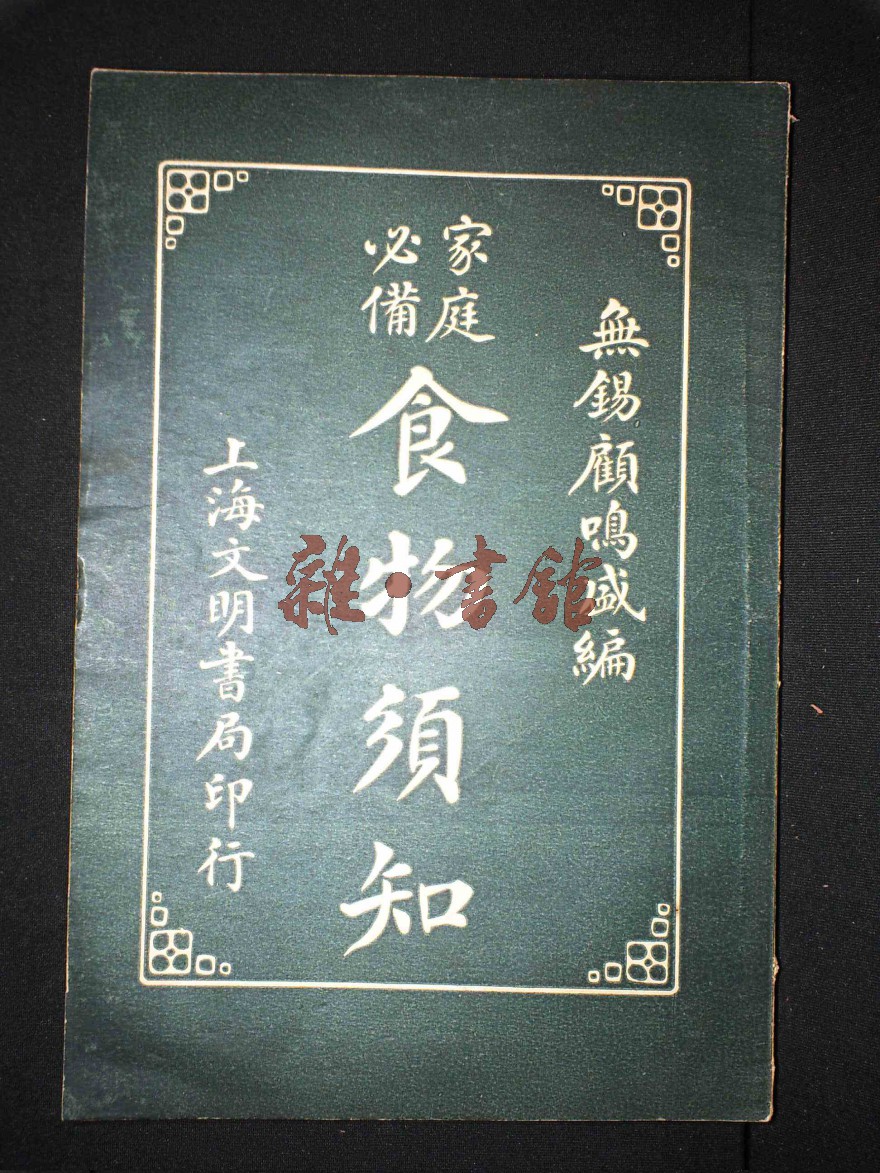 無錫顧鳴盛編
家庭
必備
食物須知
上海文明書局印行
雜·書館